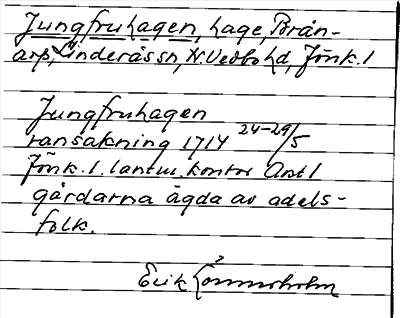 Jungfruhagen, hage, Brån-
arp, Linderås sn, N. Vedbo hd, Jönk. l
Jungfruhagen
ransakning 1714 24-29/5
Jönk. l. lantm. kontor Akt 1
gårdarna ägda av adels-
folk.
Erik